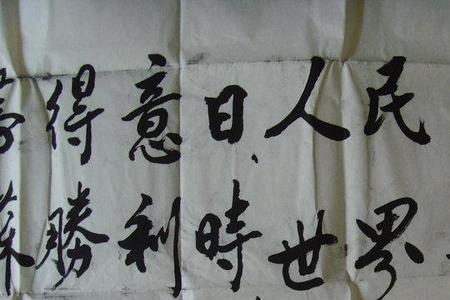 民界
人世
日時
意利
得勝